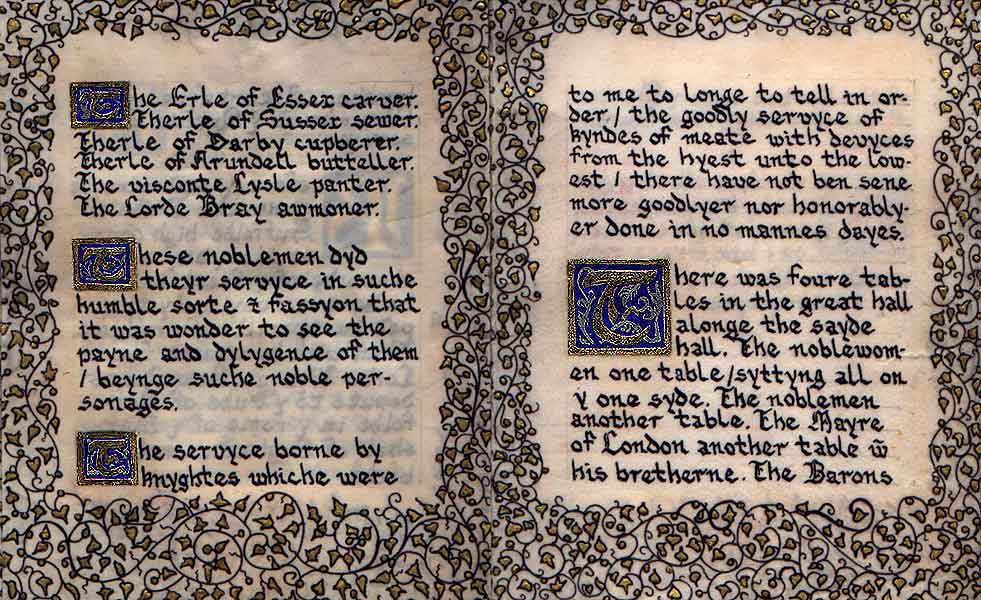 The Erle of Essex carver.
Therle of Sussex sewer.
Therle of Darby cupberer.
Therle of Arundell butteller.
The visconte Lysle panter.
The Lorde Bray awmoner.
These noblemen dyd
theyr servyce in suche
humble sorte & fassyon that
it was wonder to see the
payne and dylygence of them
/ beynge suche noble per-
sonages.
The servyce borne by
knyghtes whiche were
to me to longe to tell in or-
der / the goodly servyce of
kyndes of meate with devyces
from the hyest unto the low-
est / there have not ben sene
more goodlyer nor honorably-
er done in no mannes dayes.
There was foure tab-
les in the great hall
alonge the sayde
hall. The noblewom-
en one table/syttyng all on
y one syde. The noblemen
another table. The Mayre
of London another table w̃
his bretherne. The Barons